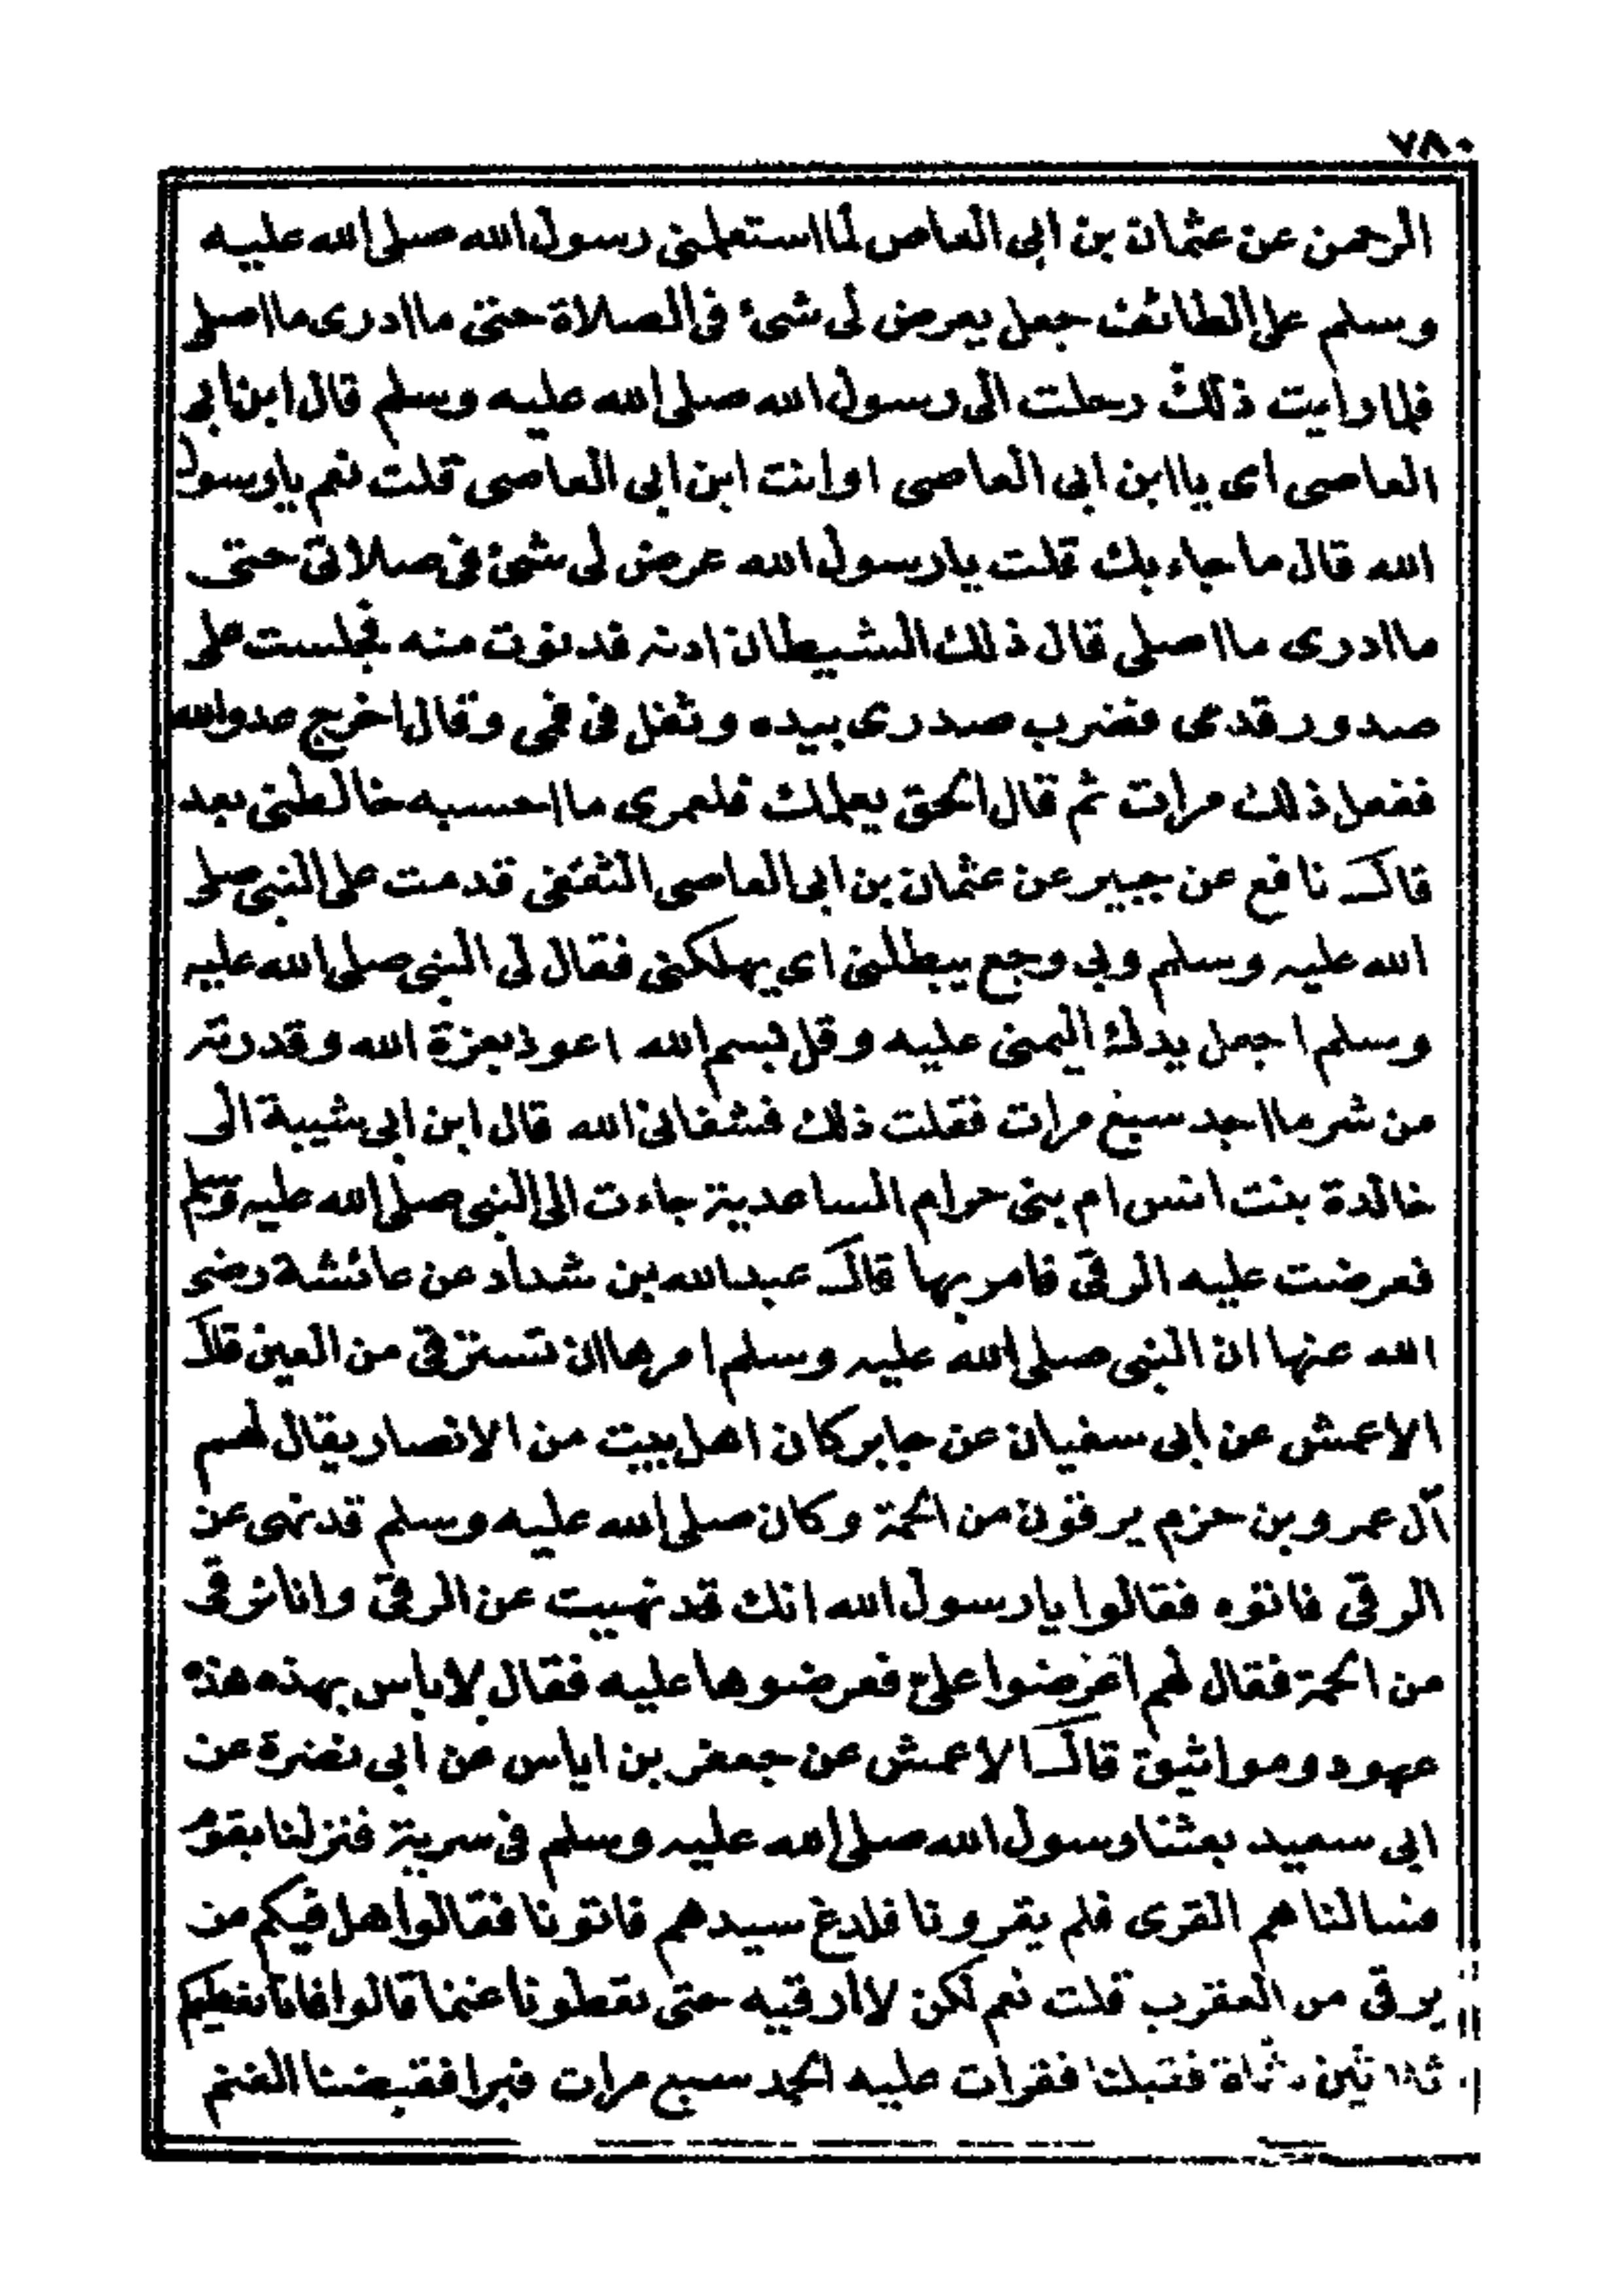 ٧٨٠
الرحمن عن عثمان بن ابي العاص لما استعملني رسول الله صلى الله عليه
وسلم على الطائف جعل يعرض لى شىء فى الصلاة حتى ما ادرى ما اصلى
فلما رايت ذلك رحلت الى رسول الله صلى الله عليه وسلم قال ابن ابي
العاصى اى يا ابن ابى العاصى او انت ابن ابى العاصى قلت نعم يا رسول
الله قال ما جاء بك قلت يا رسول الله عرض لى شئ فى صلاتى حتى
ما ادرى ما اصلى قال ذلك الشيطان ادنه فدنوت منه فجلست على
صدور قدمى فضرب صدرى بيده وتفل فى فمى وقال اخرج عدو الله
ففعل ذلك مرات ثم قال الحق بعملك فلعمرى ما احسبه خالطنى بعد
قال نافع عن جبير عن عثمان بن ابى العاصى الثقفى قدمت على النبى صلى
الله عليه وسلم وبى وجع يبطلنى اي يهلكنى فقال لى النبى صلى الله عليه
وسلم اجعل يدك اليمنى عليه وقل بسم الله اعوذ بعزة الله وقدرته
من شر ما اجد سبع مرات فقلت ذلك فشفانى الله قال ابن ابى شيبة الى
خالدة بنت انس ام بنى حرام الساعدية جاءت الى النبى صلى الله عليه وسلم
فعرضت عليه الرقى فامر بها قال عبد الله بن شداد عن عائشة رضى
الله عنها ان النبى صلى الله عليه وسلم امرها ان تسترقى من العين قال
الاعمش عن ابى سفيان عن جابر كان اهل بيت من الانصار يقال لهم
آل عمرو بن حزم يرقون من الحمة وكان صلى الله عليه وسلم قد نهى عن
الرقى فاتوه فقالوا يا رسول الله انك قد نهيت عن الرقى وانا نرقى
من الحمة فقال لهم اعرضوا علىّ فعرضوها عليه فقال لا باس بهذه هذه
عهود ومواثيق قال الاعمش عن جعفر بن اياس عن ابى نضرة عن
ابى سعيد بعثنا رسول الله صلى الله عليه وسلم فى سرية فنزلنا بقوم
فسالناهم القرى فلم يقرونا فلدغ سيدهم فاتونا فقالوا هل فيكم من
يرقى من العقرب قلت نعم لكن لا ارقيه حتى تعطونا غنما قالوا فانا نعطيكم
ثلاثين شاة فقبلنا فقرات عليه الحمد سبع مرات فبرا فقبضنا الغنم